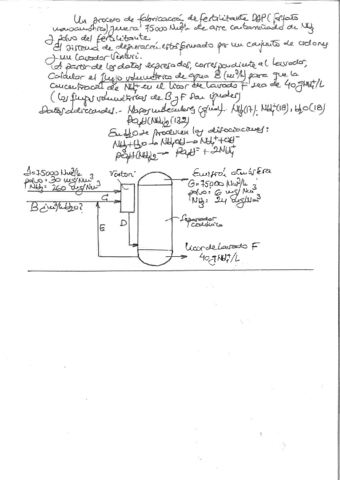 Un proceso de fabricación de fertilizante DAP (fosfato
monoamónico) genera 75000 Nm³/h de aire contaminado de NH₃
y polvo del fertilizante.
El sistema de depuración está formado por un conjunto de ciclones
y un lavador Venturi.
A partir de los datos expresados, correspondiente al lavador,
Calcular el flujo volumétrico de agua B (m³/h) para que la
concentración de NH₄⁺ en el licor de lavado F sea de 40 g NH₄⁺/L
(los flujos volumétricos de B y F son iguales)
Datos adicionales.- Masas moleculares (g/mol). NH₃(17), NH₄⁺(18), H₂O(18)
PO₄H(NH₄)₂(132)
En H₂O se producen las disociaciones:
NH₃+H₂O → NH₄OH → NH₄⁺+OH⁻
PO₄H(NH₄)₂ → PO₄H⁼ + 2NH₄⁺
A=75000 Nm³/h
polvo=30 mg/Nm³
NH₃=260 mg/Nm³
B ¿m³/h H₂O?
Venturi
C
D
E
Separador
ciclónico
Emisión atmósfera
G=75000 Nm³/h
polvo=6 mg/Nm³
NH₃=24 mg/Nm³
Licor de lavado F
40 g NH₄⁺/L